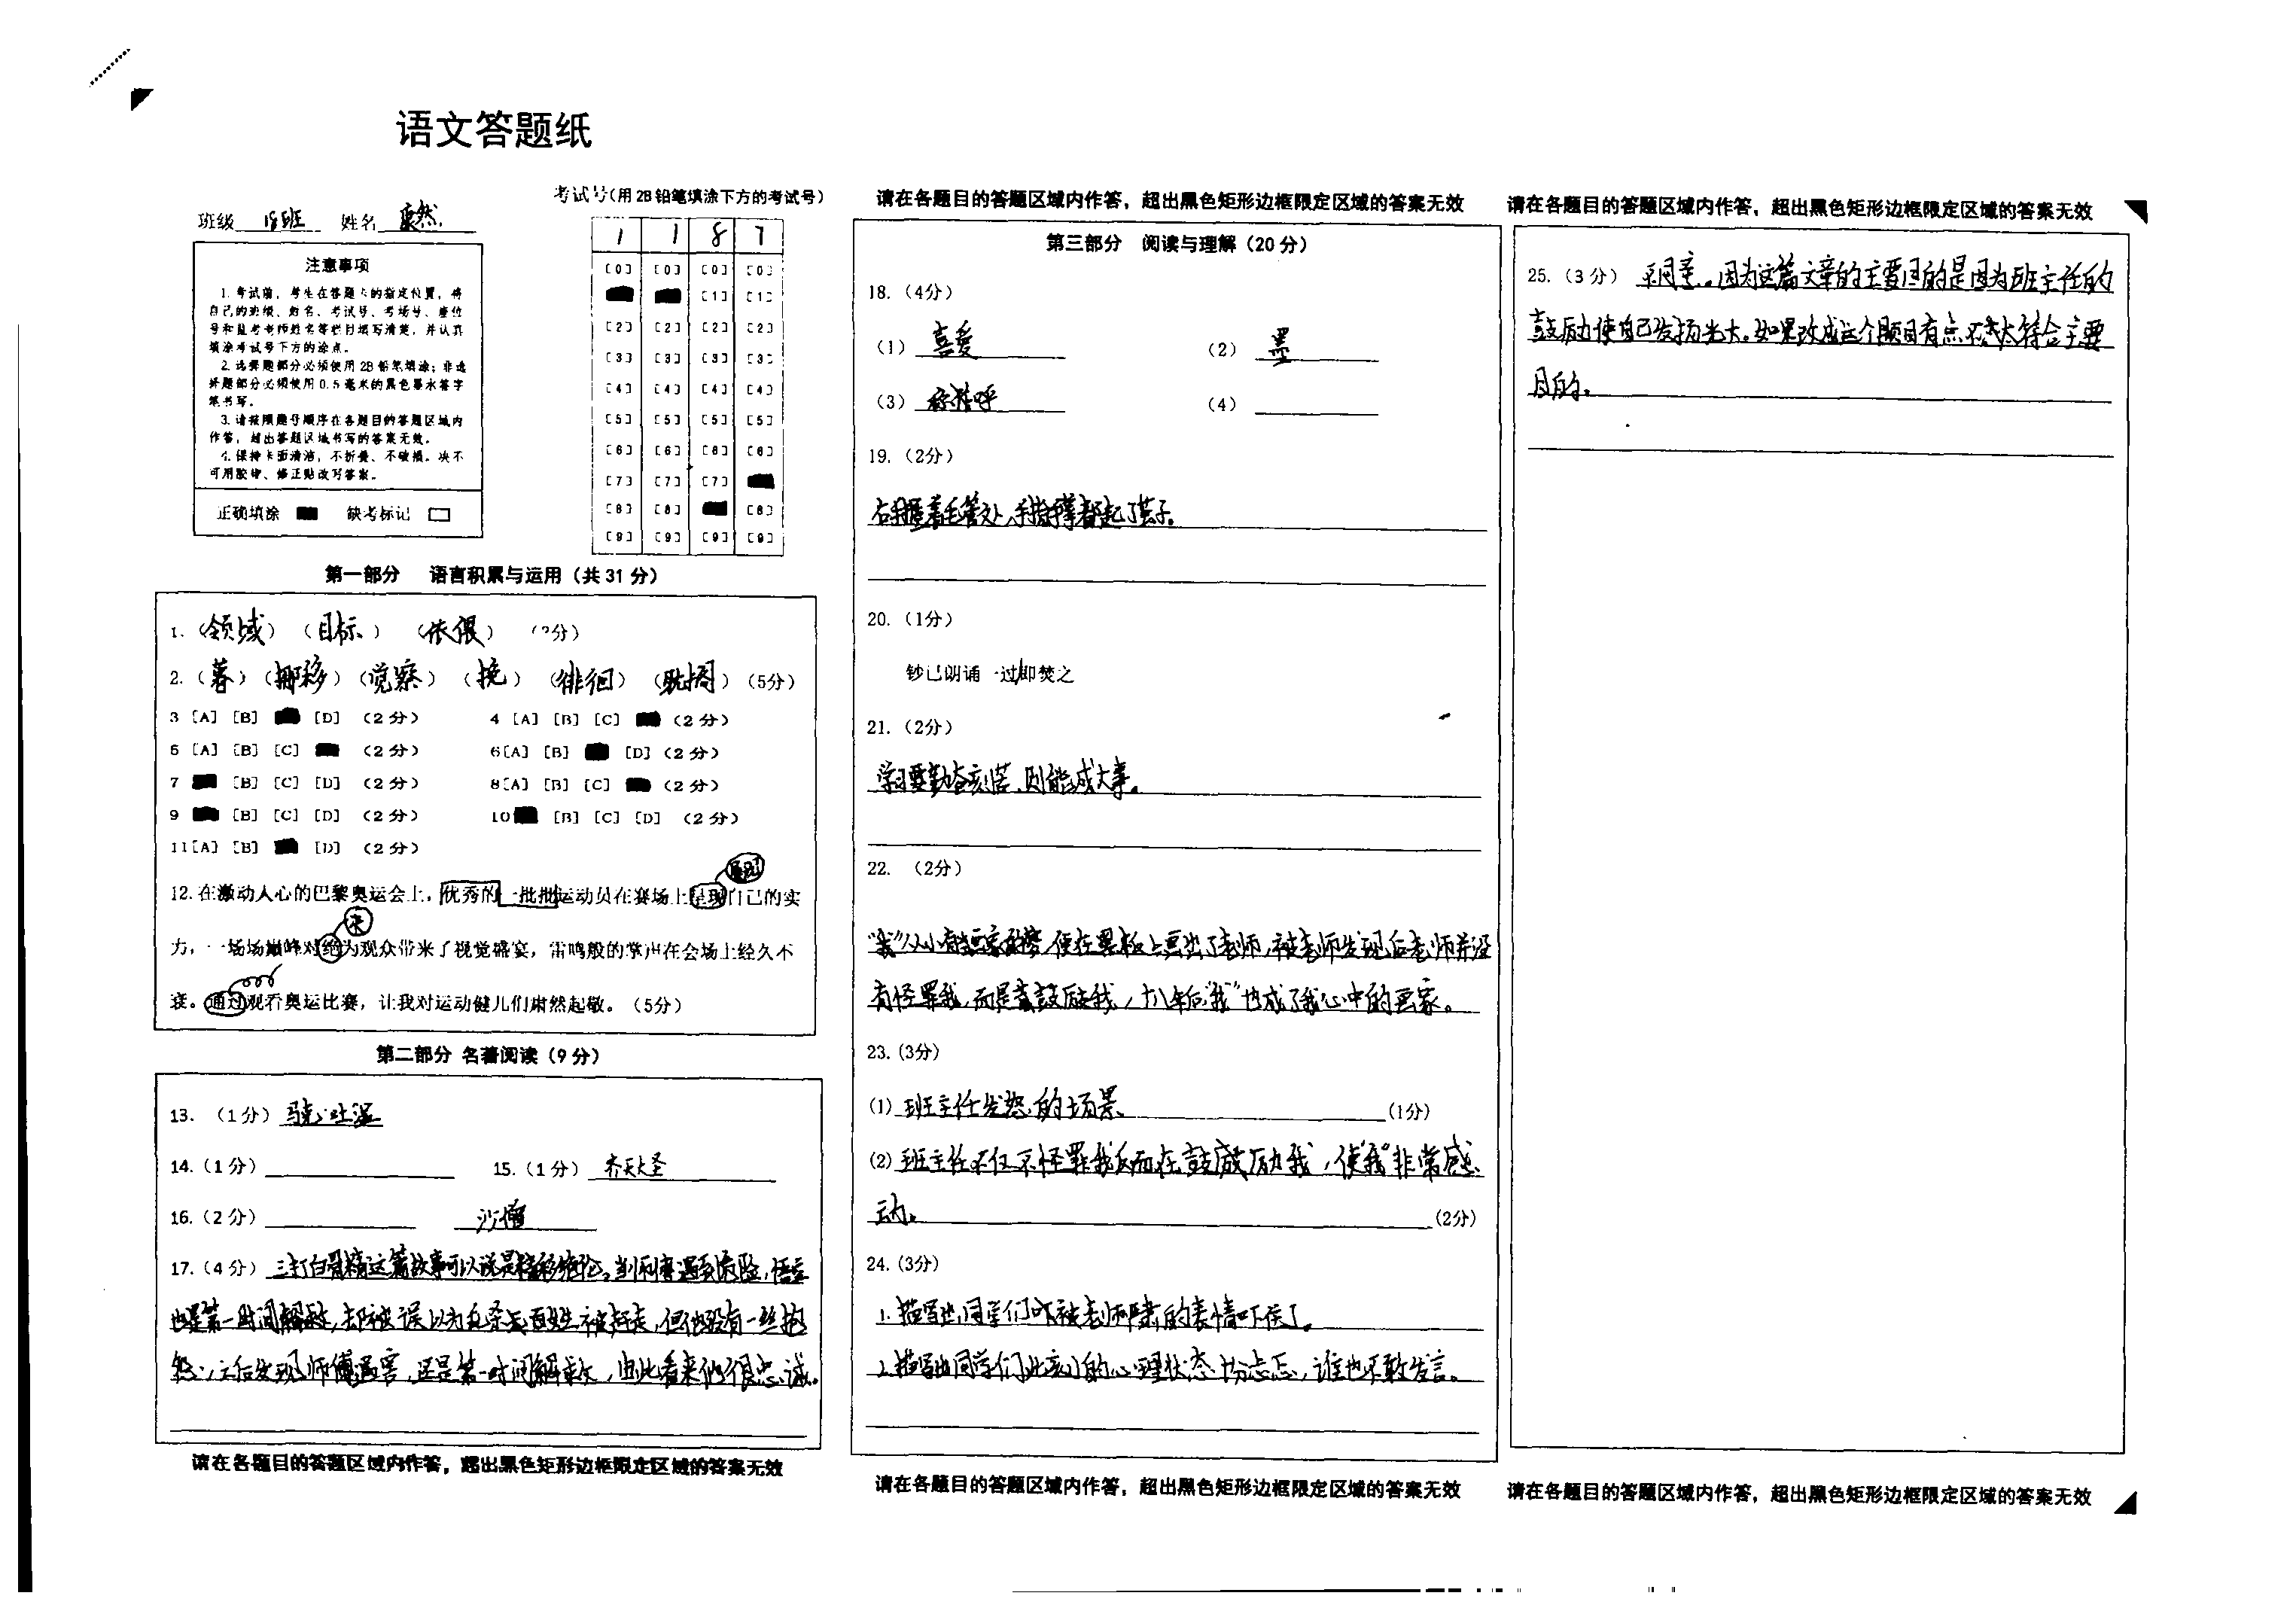 语文答题纸
班级 18班 姓名 康然
考试号(用 2B 铅笔填涂下方的考试号)
1 1 8 7
[0] [0] [0] [0]
[1] [1]
[2] [2] [2] [2]
[3] [3] [3] [3]
[4] [4] [4] [4]
[5] [5] [5] [5]
[6] [6] [6] [6]
[7] [7] [7]
[8] [8] [8]
[9] [9] [9] [9]
注意事项
1. 考试前，考生在答题卡的指定位置，将
自己的班级、姓名、考试号、考场号、座位
号和监考老师姓名等栏目填写清楚，并认真
填涂考试号下方的涂点。
2. 选择题部分必须使用 2B 铅笔填涂；非选
择题部分必须使用 0.5 毫米的黑色墨水签字
笔书写。
3. 请按照题号顺序在各题目的答题区域内
作答，超出答题区域书写的答案无效。
4. 保持卡面清洁，不折叠、不破损。决不
可用胶带、修正贴改写答案。
正确填涂 缺考标记
第一部分 语言积累与运用（共 31 分）
1.（领域）（目标）（依偎）
2.（暮）（挪移）（觉察）（挠）（徘徊）（）（5分）
3 [A] [B] [D] （2 分） 4 [A] [B] [C] （2 分）
5 [A] [B] [C] （2 分） 6 [A] [B] [D]（2 分）
7 [B] [C] [D] （2 分） 8 [A] [B] [C] （2 分）
9 [B] [C] [D] （2 分） 10 [B] [C] [D] （2 分）
11 [A] [B] [D] （2 分）
12. 在激动人心的巴黎奥运会上，优秀的一批批运动员在赛场上呈现自己的实
展现
力，一场场巅峰对绝为观众带来了视觉盛宴，雷鸣般的掌声在会场上经久不
决
衰。通过观看奥运比赛，让我对运动健儿们肃然起敬。（5分）
第二部分 名著阅读（9 分）
13. （1 分）骆宾王
14.（1 分） 15.（1 分）齐天大圣
16.（2 分） 沙僧
17.（4 分）三打白骨精这篇故事可以说是精彩绝伦。当师傅遇到危险，悟空
也是第一时间解救，却被误以为乱杀百姓被赶走，但他没有一丝抱
怨，之后发现师傅遇害，还是第一时间解救，由此看来他很忠诚。
请在各题目的答题区域内作答，超出黑色矩形边框限定区域的答案无效
请在各题目的答题区域内作答，超出黑色矩形边框限定区域的答案无效
第三部分 阅读与理解（20 分）
18.（4分）
（1）喜爱 （2）墨
（3）称呼 （4）
19.（2分）
右手握着毛管处，手指掌都起了茧子。
20.（1分）
钞已朗诵一过/即焚之
21.（2分）
学习要勤奋刻苦，则能成大事。
22. （2分）
“我”从小有画家的梦，便在黑板上画出了老师，被老师发现后老师并没
有怪罪我，而是鼓励我，十八年后“我”也成了我心中的画家。
23.（3分）
(1) 班主任发怒的场景 (1分)
(2) 班主任不仅不怪罪我反而在鼓励我，使“我”非常感
动。 (2分)
24.（3分）
1. 描写出同学们被老师严肃的表情吓傻了。
2. 描写出同学们此刻的心理状态十分忐忑，谁也不敢发言。
请在各题目的答题区域内作答，超出黑色矩形边框限定区域的答案无效
请在各题目的答题区域内作答，超出黑色矩形边框限定区域的答案无效
25.（3 分）不同意。因为这篇文章的主要目的是因为班主任的
鼓励使自己发扬光大。如果改成这个题目有点不太符合主要
目的。
请在各题目的答题区域内作答，超出黑色矩形边框限定区域的答案无效